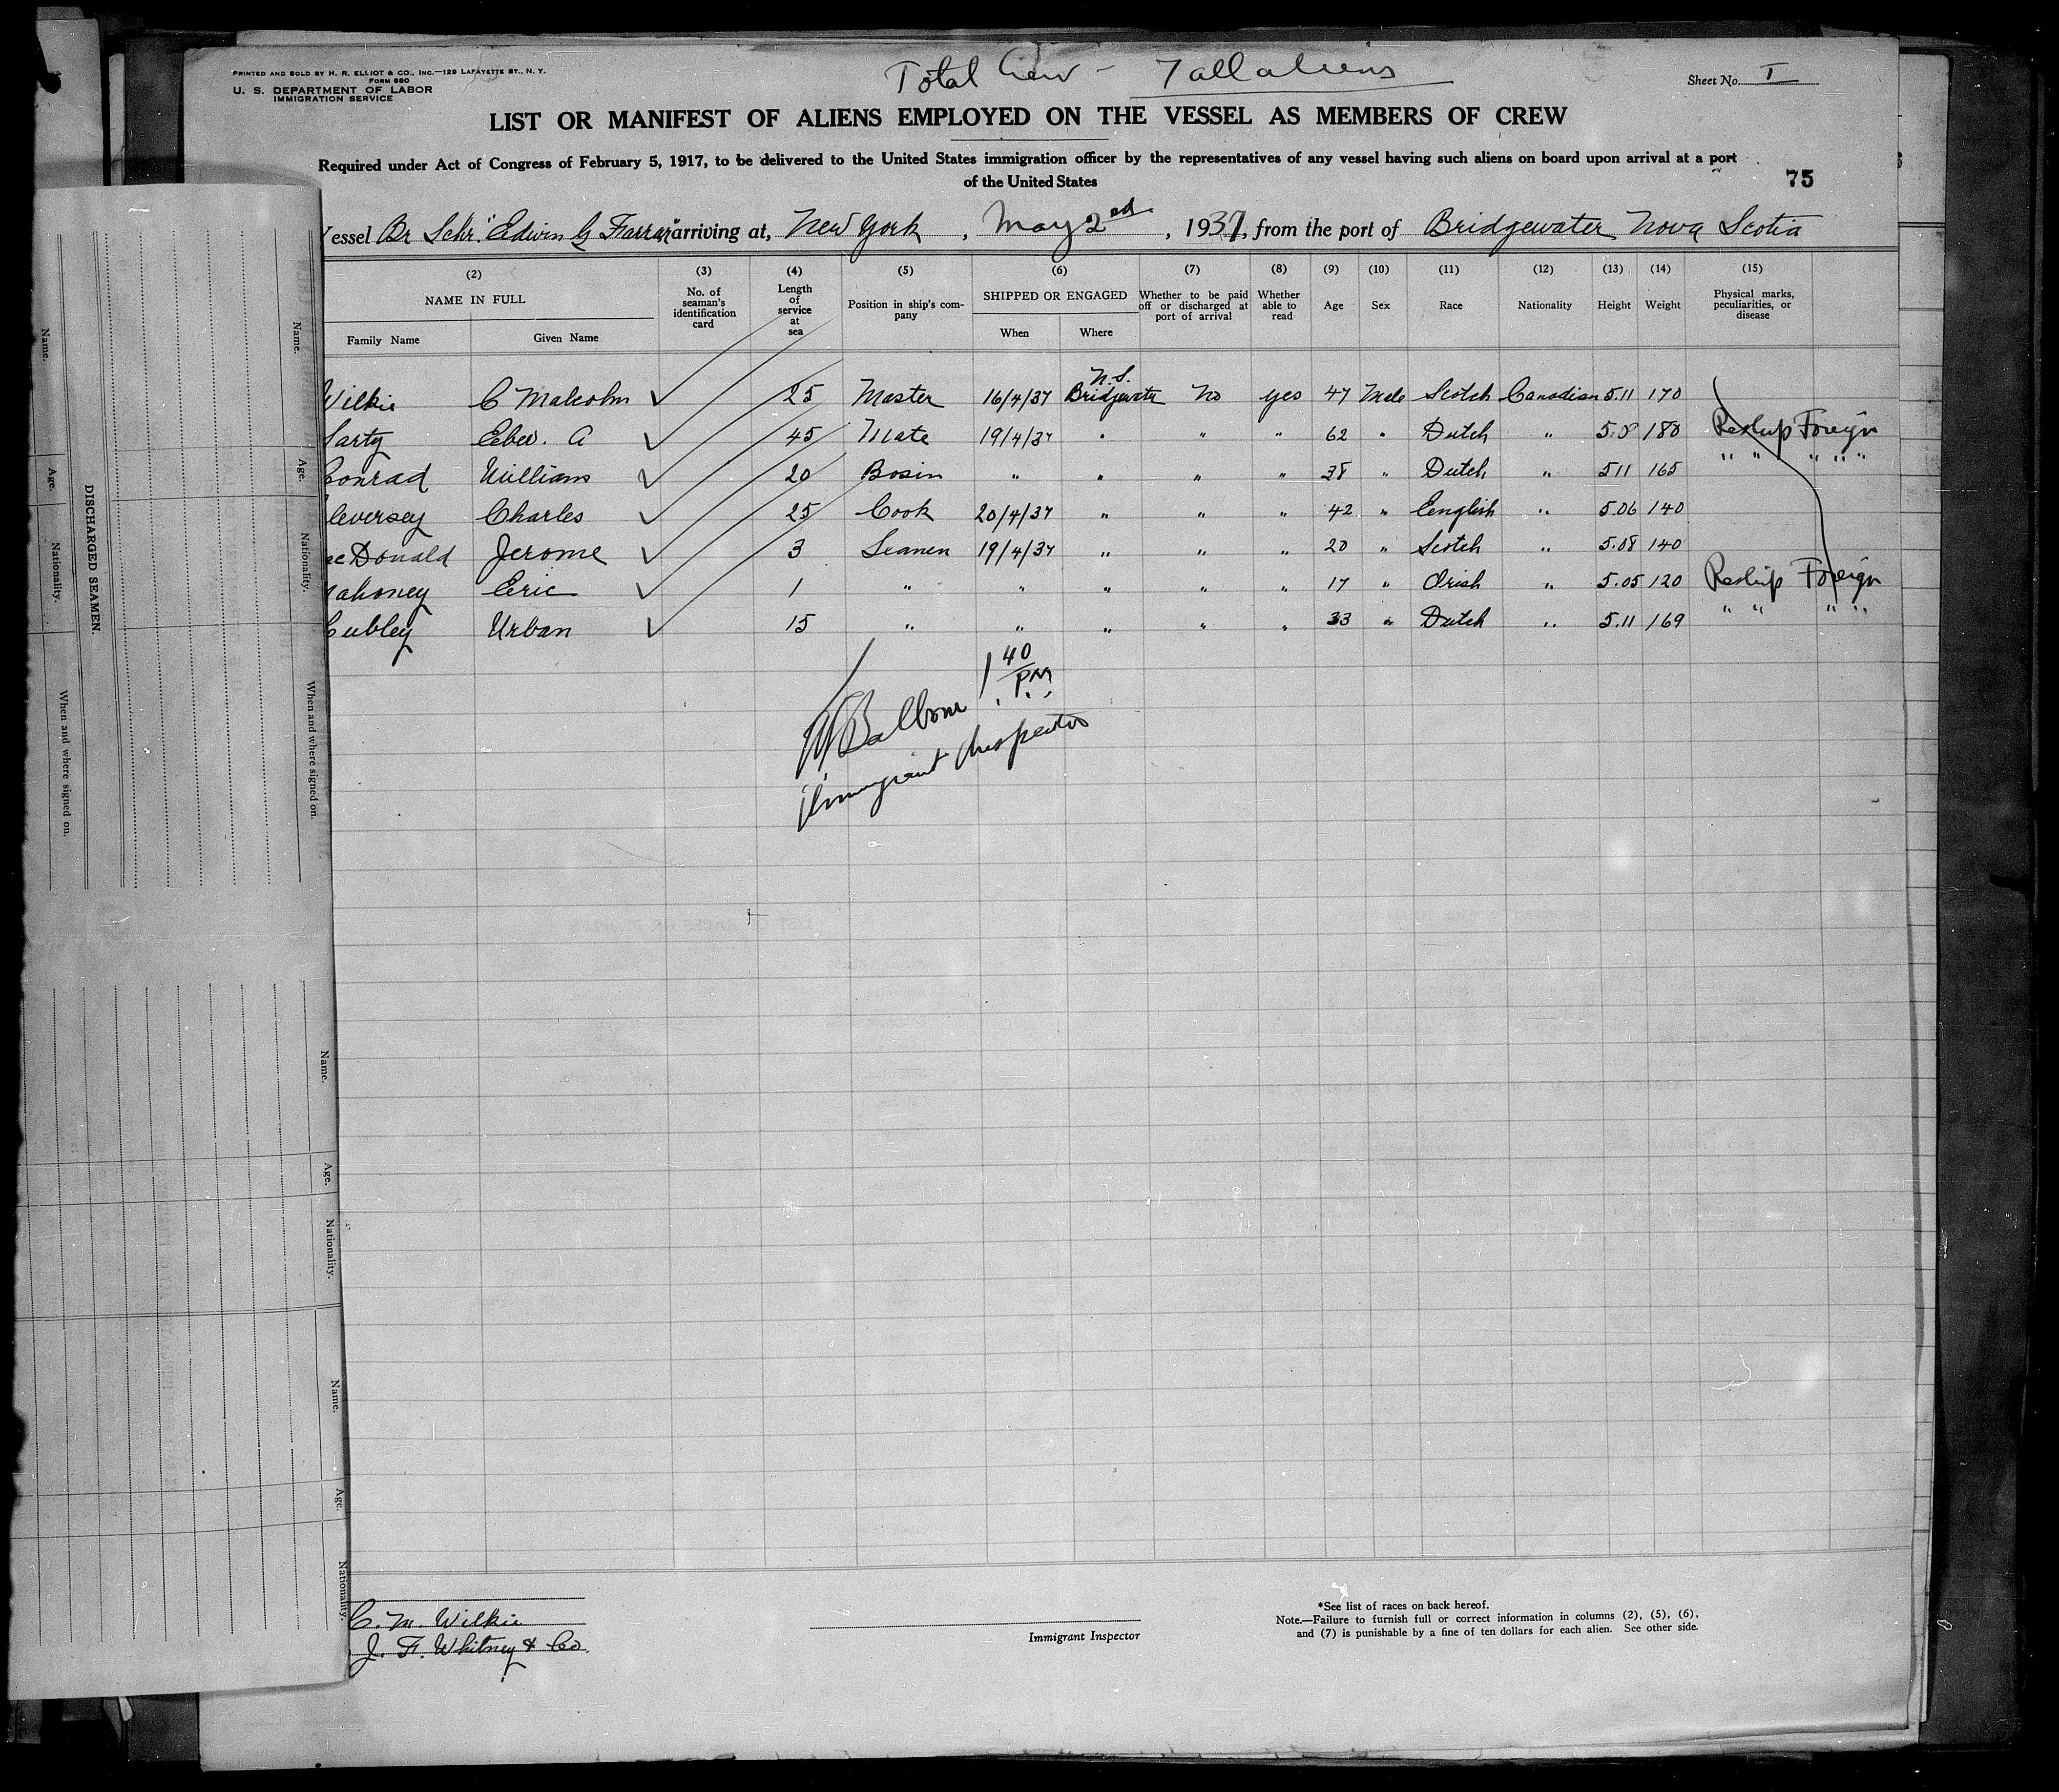 PRINTED AND SOLD BY H. R. ELLIOT & CO., INC.—129 LAFAYETTE ST., N. Y.
FORM 680
U. S. DEPARTMENT OF LABOR
IMMIGRATION SERVICE
Total Crew - 7 all aliens
Sheet No. I
LIST OR MANIFEST OF ALIENS EMPLOYED ON THE VESSEL AS MEMBERS OF CREW
Required under Act of Congress of February 5, 1917, to be delivered to the United States immigration officer by the representatives of any vessel having such aliens on board upon arrival at a port
of the United States
75
Vessel Br Schr. "Edwin G Farrar" arriving at, New York, May 2nd, 1937, from the port of Bridgewater Nova Scotia
(2) (3) (4) (5) (6) (7) (8) (9) (10) (11) (12) (13) (14) (15)
NAME IN FULL No. of seaman's identification card Length of service at sea Position in ship's company SHIPPED OR ENGAGED Whether to be paid off or discharged at port of arrival Whether able to read Age Sex Race Nationality Height Weight Physical marks, peculiarities, or disease
Family Name Given Name When Where
N.S.
Wilkie C Malcolm ✓ 25 Master 16/4/37 Bridgewater No yes 47 Male Scotch Canadian 5.11 170
Sarty Eber. A ✓ 45 Mate 19/4/37 " " " 62 " Dutch " 5.8 180 Reship Foreign
Conrad William ✓ 20 Bosin " " " " 38 " Dutch " 5 11 165 " " " " "
Leversey Charles ✓ 25 Cook 20/4/37 " " " 42 " English " 5.06 140
ac Donald Jerome ✓ 3 Seamen 19/4/37 " " " 20 " Scotch " 5.08 140
Mahoney Eric ✓ 1 " " " " " 17 " Irish " 5.05 120 Reship Foreign
Cubley Urban ✓ 15 " " " " " 33 " Dutch " 5.11 169 " " " "
1 40 PM
Immigrant Inspector
C. M. Wilkie
J. F. Whitney & Co.
Immigrant Inspector
*See list of races on back hereof.
Note.—Failure to furnish full or correct information in columns (2), (5), (6),
and (7) is punishable by a fine of ten dollars for each alien. See other side.
DISCHARGED SEAMEN.
Name. Age. Nationality. When and where signed on.
Name. Age. Nationality. When and where signed on.
Name. Age. Nationality.
Name. Age. Nationality.